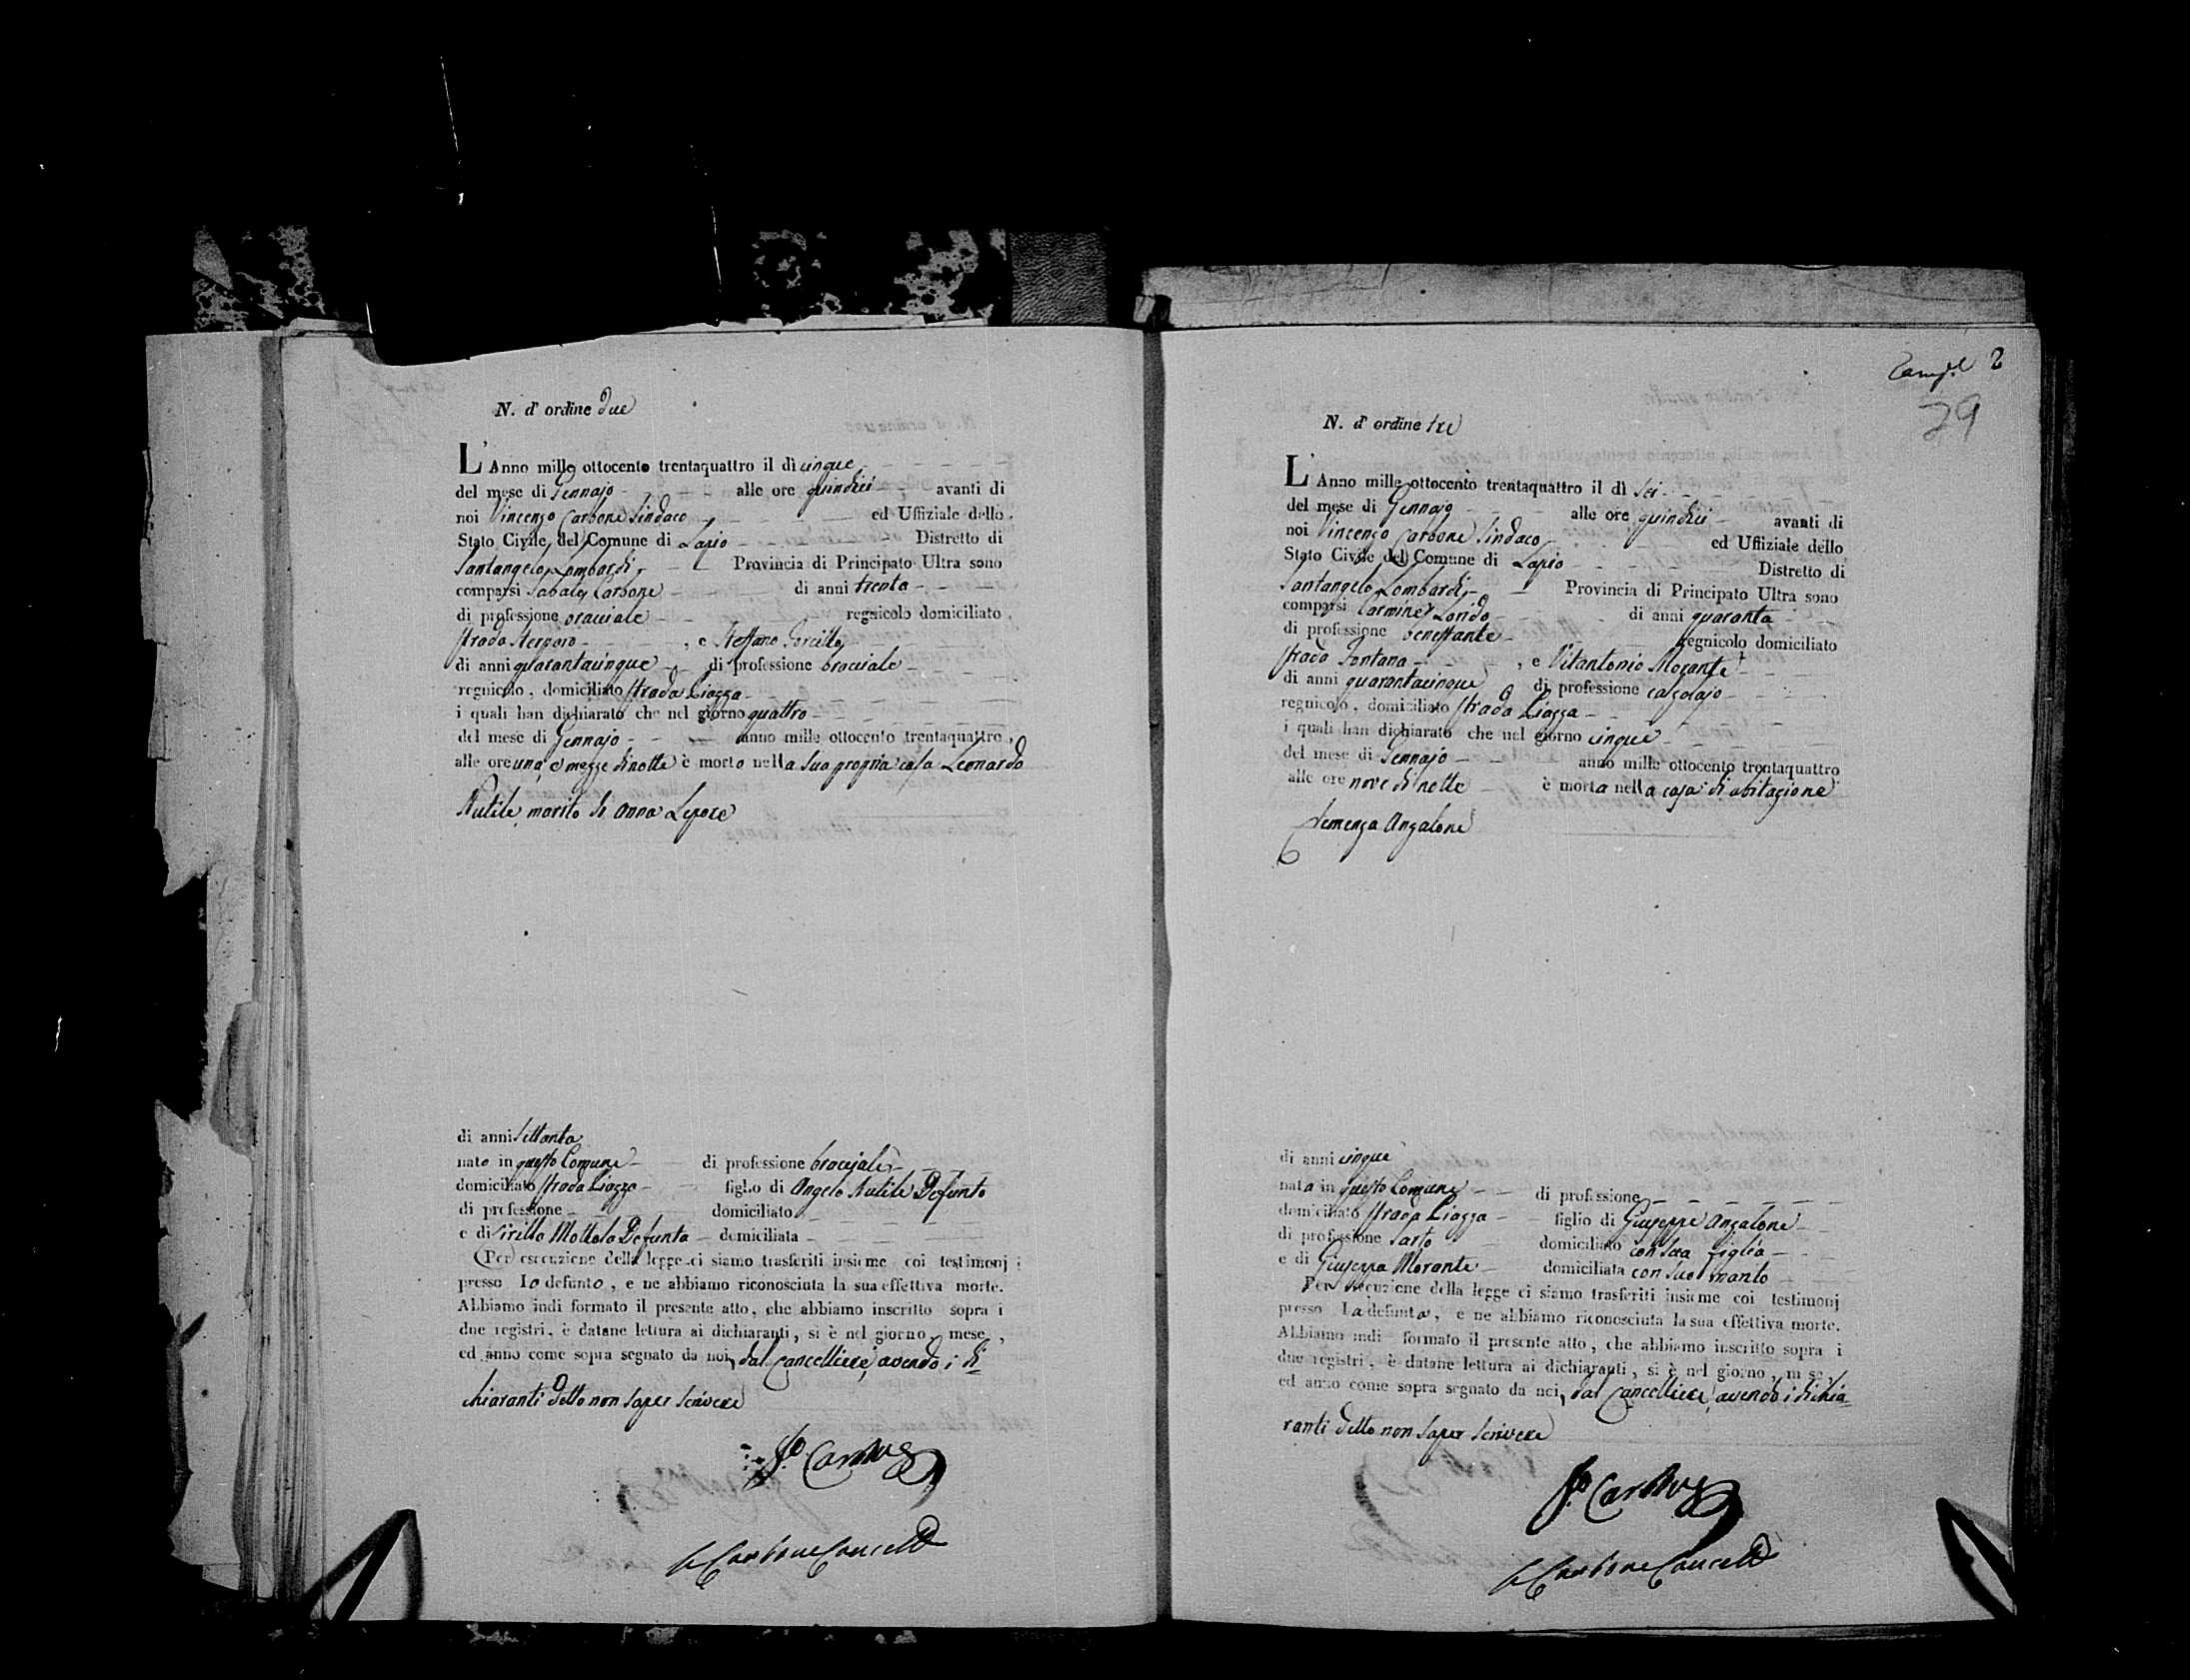 N. d' ordine due
L'Anno mille ottocento trentaquattro il dì cinque
del mese di Gennajo alle ore quindici avanti di
noi Vincenzo Carbone Sindaco ed Uffiziale dello
Stato Civile del Comune di Lapio Distretto di
Santangelo Lombardi Provincia di Principato Ultra sono
comparsi Sabato Carbone di anni trenta
di professione bracciale regnicolo domiciliato
strada , e Steffano Forcillo
di anni quarantacinque di professione bracciale
regnicolo, domiciliato strada Piazza
i quali han dichiarato che nel giorno quattro
del mese di Gennajo anno mille ottocento trentaquattro,
alle ore una, e mezze di notte è morto nella sua propria casa Leonardo
Nutile marito di Anna Lepore
di anni settanta
nato in questo Comune di professione bracciale
domiciliato strada Piazza figlio di Angelo Nutile Defunto
di professione domiciliato
e di Cirilla Mottola Defunta domiciliata
Per esecuzione della legge ci siamo trasferiti insieme coi testimonj
presso lo defunto, e ne abbiamo riconosciuta la sua effettiva morte.
Abbiamo indi formato il presente atto, che abbiamo inscritto sopra i
due registri, è datane lettura ai dichiaranti, si è nel giorno, mese,
ed anno come sopra segnato da noi, dal Cancelliere, avendo i di
chiaranti detto non saper scrivere
Carbone
Carbone Cancell.
Camp. 2
29
N. d' ordine tre
L'Anno mille ottocento trentaquattro il dì sei
del mese di Gennajo alle ore quindici avanti di
noi Vincenzo Carbone Sindaco ed Uffiziale dello
Stato Civile del Comune di Lapio Distretto di
Santangelo Lombardi Provincia di Principato Ultra sono
comparsi Carmine Londo di anni quaranta
di professione benestante regnicolo domiciliato
strada Fontana , e Vitantonio Morante
di anni quarantacinque di professione calzolajo
regnicolo, domiciliato strada Piazza
i quali han dichiarato che nel giorno cinque
del mese di Gennajo anno mille ottocento trentaquattro
alle ore nove di notte è morta nella casa di abitazione
Clemenza Anzalone
di anni cinque
nata in questo Comune di professione
domiciliato strada Piazza figlio di Giuseppe Anzalone
di professione sarto domiciliato con sua figlia
e di Giuseppa Morante domiciliata con suo marito
Per esecuzione della legge ci siamo trasferiti insieme coi testimonj
presso la defunta, e ne abbiamo riconosciuta la sua effettiva morte.
Abbiamo indi formato il presente atto, che abbiamo inscritto sopra i
due registri, è datane lettura ai dichiaranti, si è nel giorno, mese,
ed anno come sopra segnato da noi, dal Cancelliere, avendo i dichia
ranti detto non saper scrivere
Carbone
Carbone Cancell.